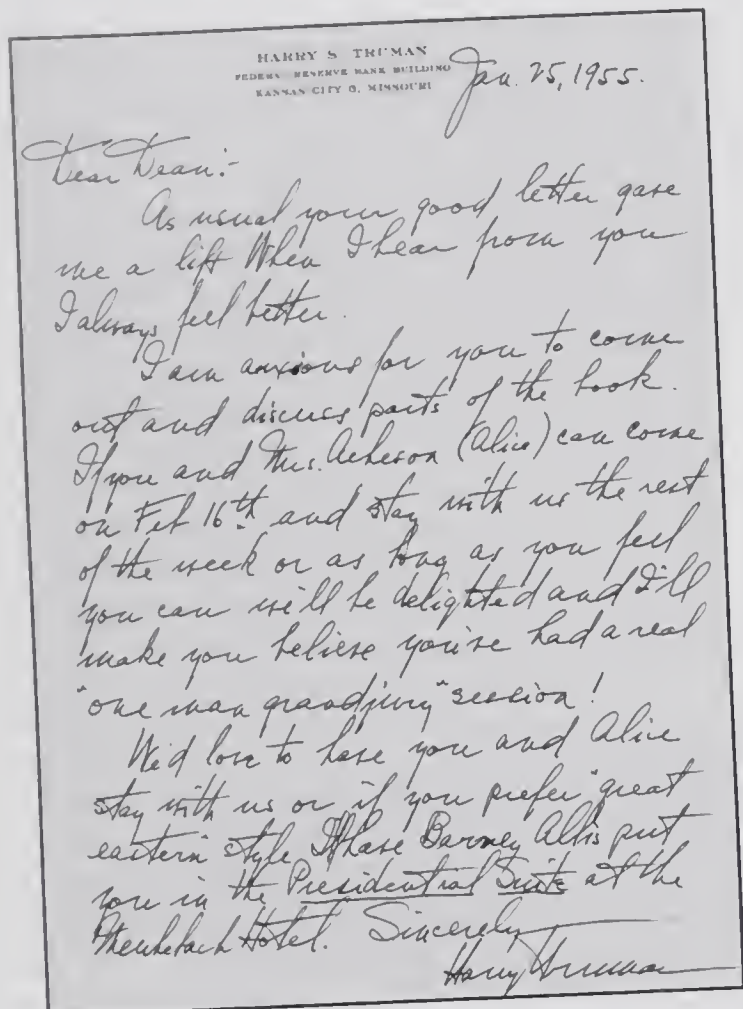 HARRY S. TRUMAN
FEDERAL RESERVE BANK BUILDING
KANSAS CITY 6, MISSOURI
Jan. 25, 1955.
Dear Dean:-
As usual your good letter gave
me a lift When I hear from you
I always feel better.
I am anxious for you to come
out and discuss parts of the book.
If you and Mrs. Acheson (Alice) can come
on Feb 16th and stay with us the rest
of the week or as long as you feel
you can we'll be delighted and I'll
make you believe you've had a real
"one man grand jury" session!
We'd love to have you and Alice
stay with us or if you prefer "great
eastern style I'll have Barney Allis put
you in the Presidential Suite at the
Muehlebach Hotel. Sincerely
Harry Truman